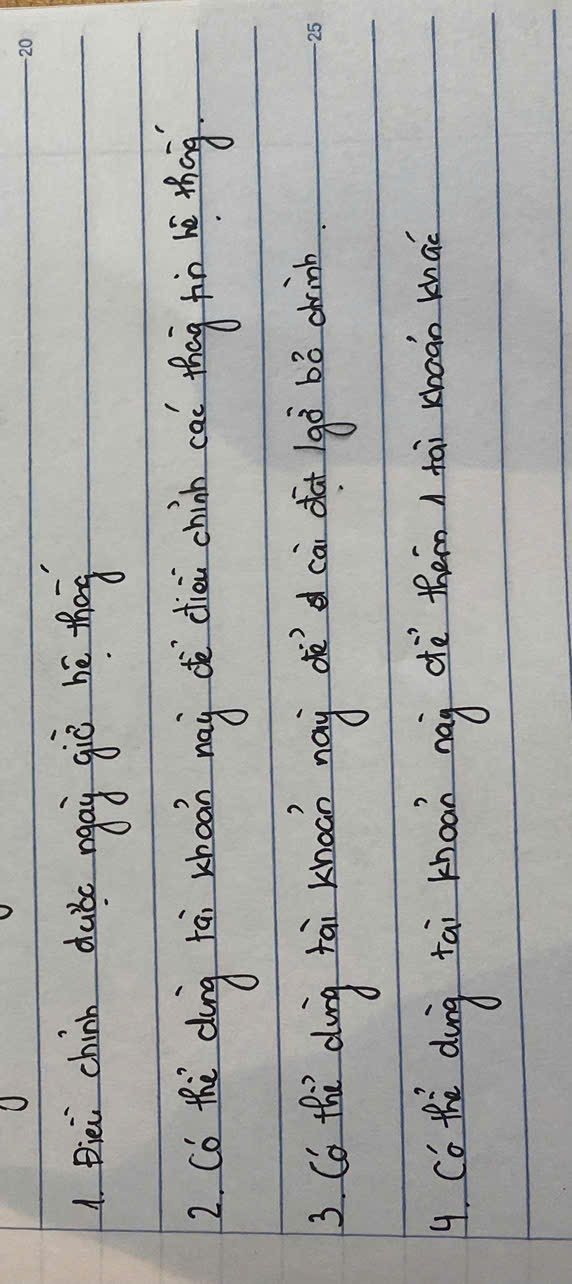 20
1. Điều chỉnh được ngày giờ hệ thống
2. Có thể dùng tài khoản này để điều chỉnh các thông tin hệ thống.
25
3. Có thể dùng tài khoản này để cài đặt / gỡ bỏ ctrình.
4. Có thể dùng tài khoản này để thêm 1 tài khoản khác